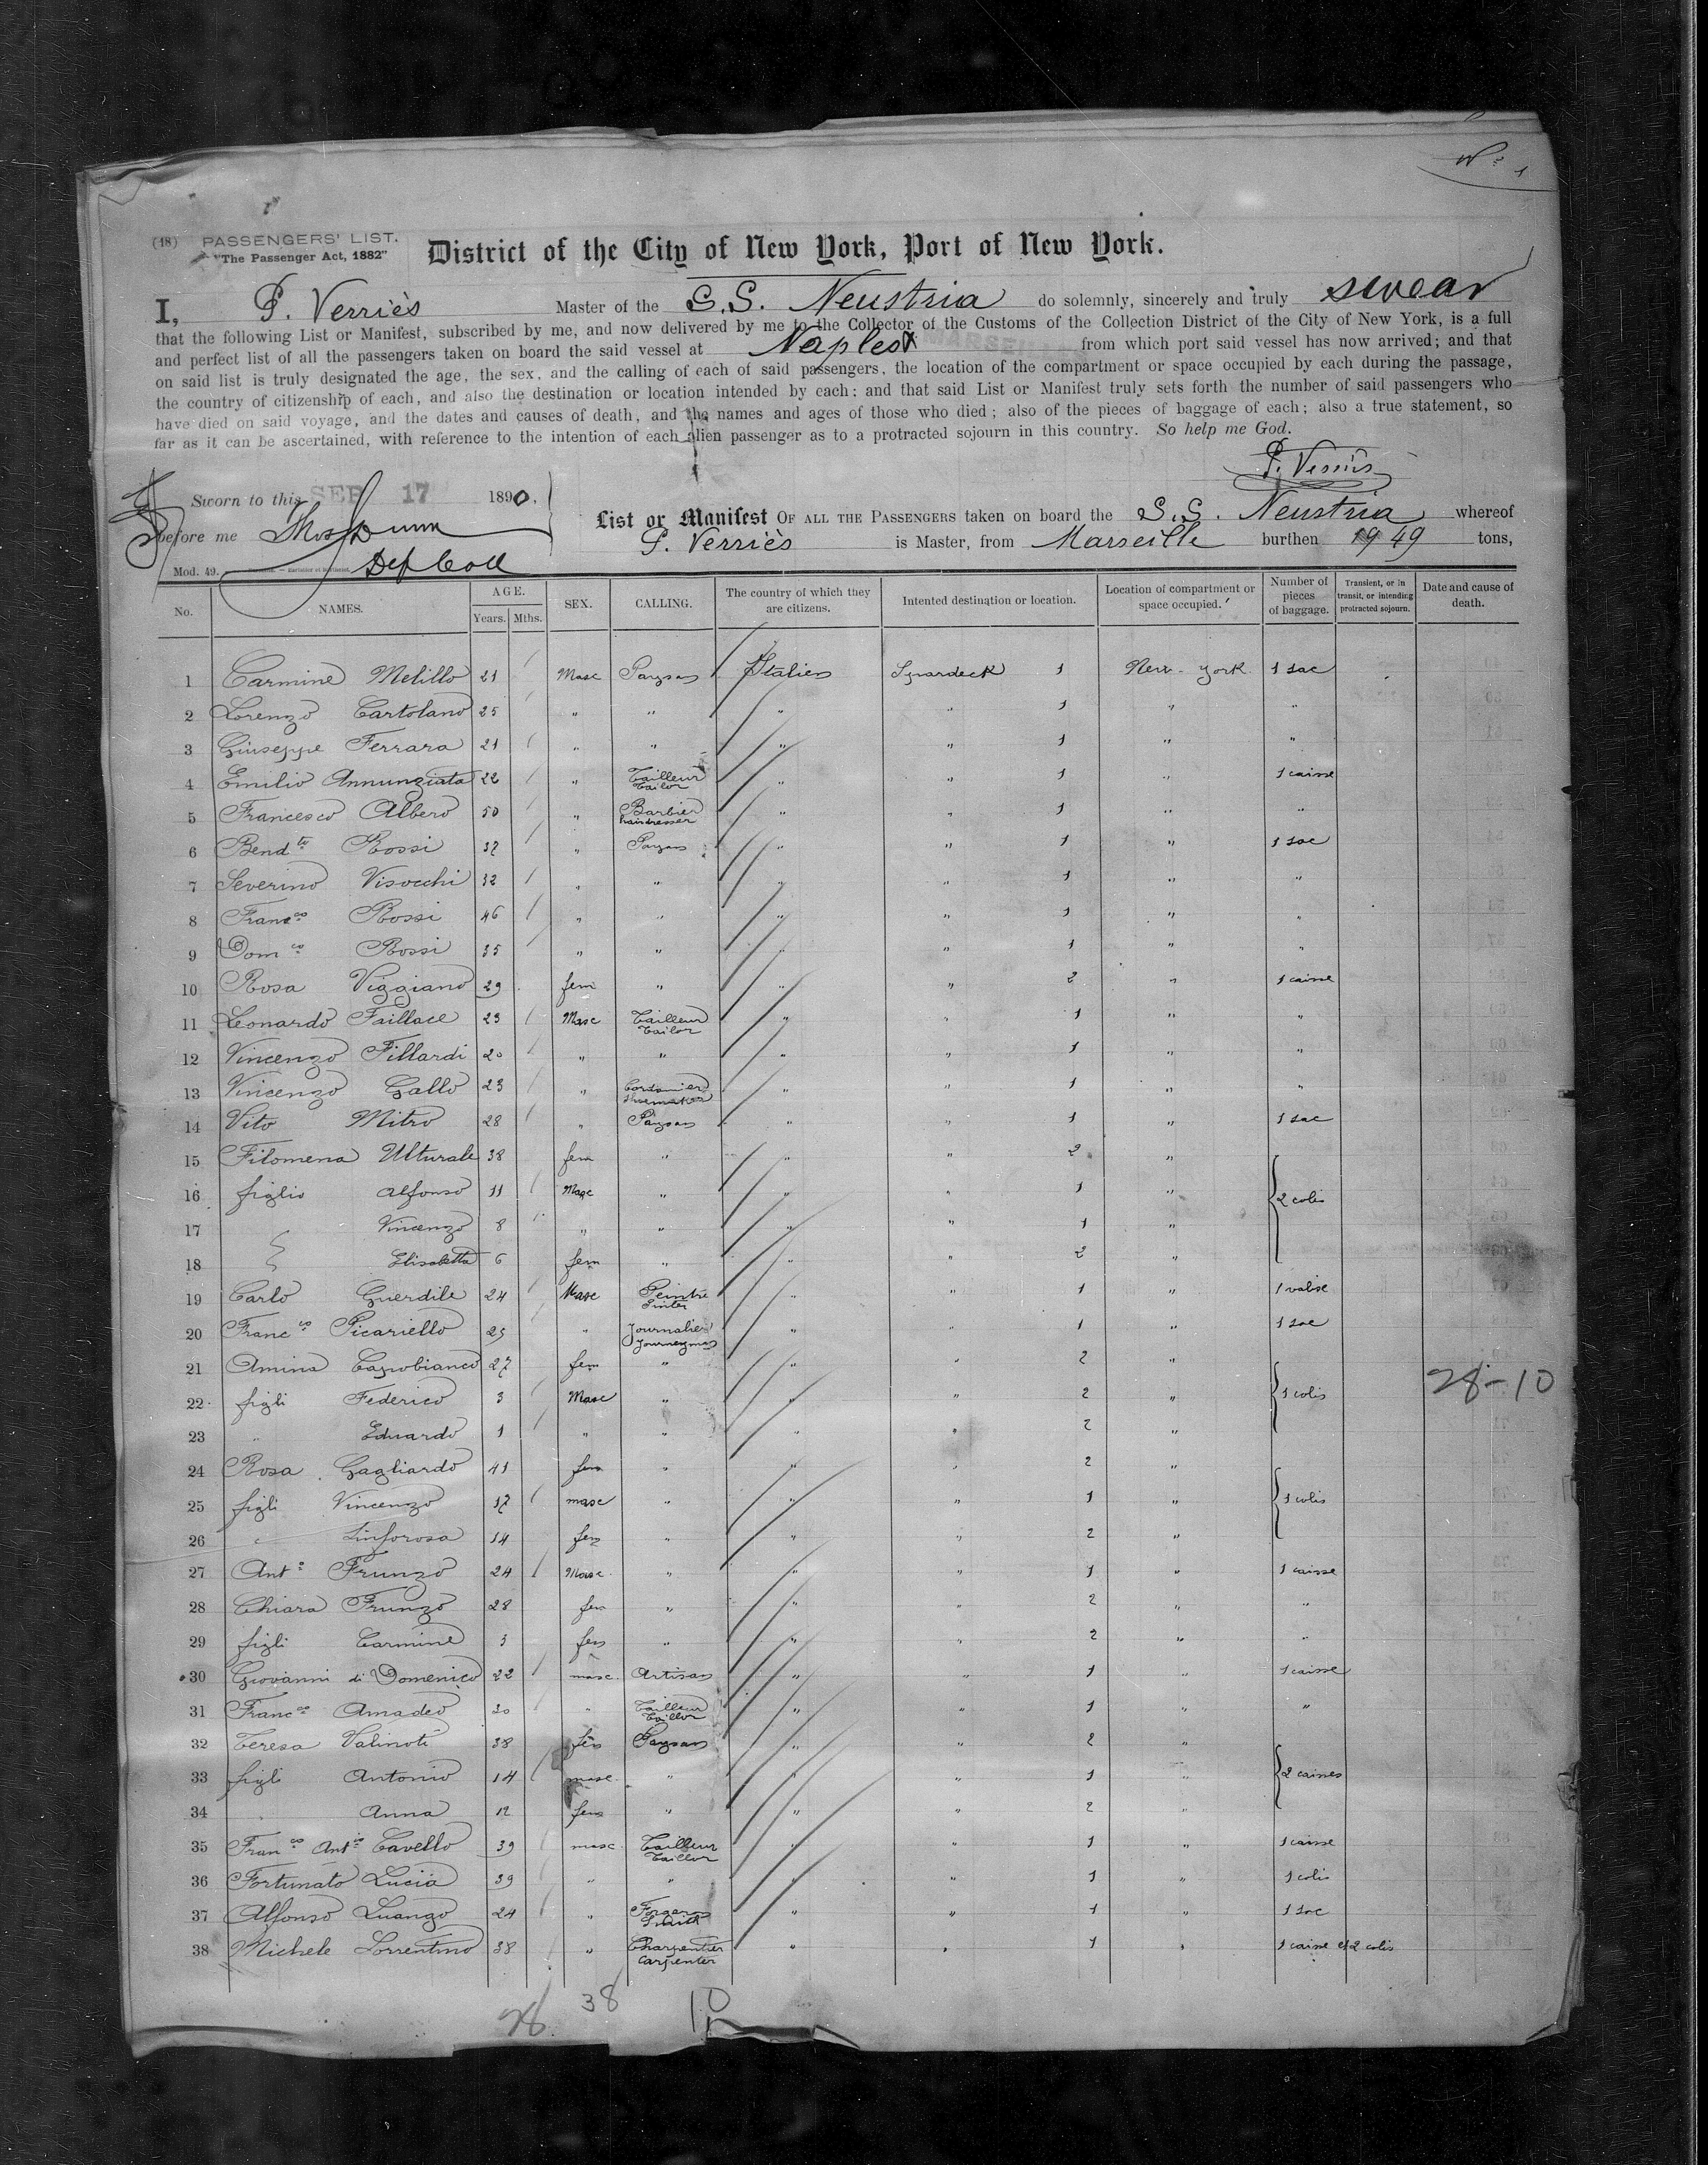 Nº 1
(18) PASSENGERS' LIST.
"The Passenger Act, 1882"
District of the City of New York, Port of New York.
I, P. Verriès Master of the S.S. Neustria do solemnly, sincerely and truly swear
that the following List or Manifest, subscribed by me, and now delivered by me to the Collector of the Customs of the Collection District of the City of New York, is a full
and perfect list of all the passengers taken on board the said vessel at Naples MARSEILLE from which port said vessel has now arrived; and that
on said list is truly designated the age, the sex, and the calling of each of said passengers, the location of the compartment or space occupied by each during the passage,
the country of citizenship of each, and also the destination or location intended by each; and that said List or Manifest truly sets forth the number of said passengers who
have died on said voyage, and the dates and causes of death, and the names and ages of those who died; also of the pieces of baggage of each; also a true statement, so
far as it can be ascertained, with reference to the intention of each alien passenger as to a protracted sojourn in this country. So help me God.
P. Verriès
Sworn to this SEP 17 1890,
before me Thos Dunn
Dep Coll
List or Manifest OF ALL THE PASSENGERS taken on board the S.S. Neustria whereof
P. Verriès is Master, from Marseille burthen 1949 tons,
Mod. 49.
No. NAMES. AGE. Years. Mths. SEX. CALLING. The country of which they are citizens. Intented destination or location. Location of compartment or space occupied. Number of pieces of baggage. Transient, or in transit, or intending protracted sojourn. Date and cause of death.
1 Carmine Melillo 21 Masc Paysan Italien Spardeck 1 New-York 1 sac
2 Lorenzo Cartolano 25 " " " " 1 " "
3 Giuseppe Ferrara 21 " " " " 1 " "
4 Emilio Annunziata 22 " Tailleur Tailor " " 1 " 1 caisse
5 Francesco Albero 50 " Barbier hairdresser " " 1 " "
6 Bend to Rossi 37 " Paysan " " 1 " 1 sac
7 Severino Visocchi 32 " " " " 1 " "
8 Franc co Rossi 46 " " " " 1 " "
9 Dom co Rossi 35 " " " " 1 " "
10 Rosa Viggiano 29 fem " " " 2 " 1 caisse
11 Leonardo Faillace 23 Masc Tailleur Tailor " " 1 " "
12 Vincenzo Fillardi 20 " " " " 1 " "
13 Vincenzo Gallo 23 " Cordonnier Shoemaker " " 1 " "
14 Vito Mitro 28 " Paysan " " 1 " 1 sac
15 Filomena Ulturale 38 fem " " " 2 "
16 figlio Alfonso 11 Masc " " " 1 " 2 colis
17 Vincenzo 8 " " " " 1 "
18 Elisabetta 6 fem " " " 2 "
19 Carlo Guerdile 24 Masc Peintre Pinter " " 1 " 1 valise
20 Franc co Picariello 25 " Journalier Journeyman " " 1 " 1 sac
21 Amina Capobianco 27 fem " " " 2 "
22 figli Federico 3 Masc " " " 2 " 1 colis 28-10
23 " Eduardo 1 " " " " 2 "
24 Rosa Gagliardo 41 fem " " " 2 "
25 figli Vincenzo 17 masc " " " 1 " 1 colis
26 " Sinforosa 14 fem " " " 2 "
27 Ant o Frunzo 24 Masc " " " 1 " 1 caisse
28 Chiara Frunzo 28 fem " " " 2 " "
29 figli Carmine 3 fem " " " 2 " "
30 Giovanni di Domenico 22 masc Artisan " " 1 " 1 caisse
31 Franc co Amadeo 30 " Tailleur Taillor " " 1 " "
32 Teresa Valinoti 38 fem Paysan " " 2 "
33 figli Antonio 14 masc " " " 1 " 2 caisses
34 Anna 12 fem " " " 2 "
35 Fran co Ant io Cavello 39 masc Tailleur Taillor " " 1 " 1 caisse
36 Fortunato Lucia 39 " " " " 1 " 1 colis
37 Alfonso Luongo 24 " Forgeron Smith " " 1 " 1 sac
38 Michele Sorrentino 38 " Charpentier Carpenter " " 1 " 1 caisse et 2 colis
28 38 10